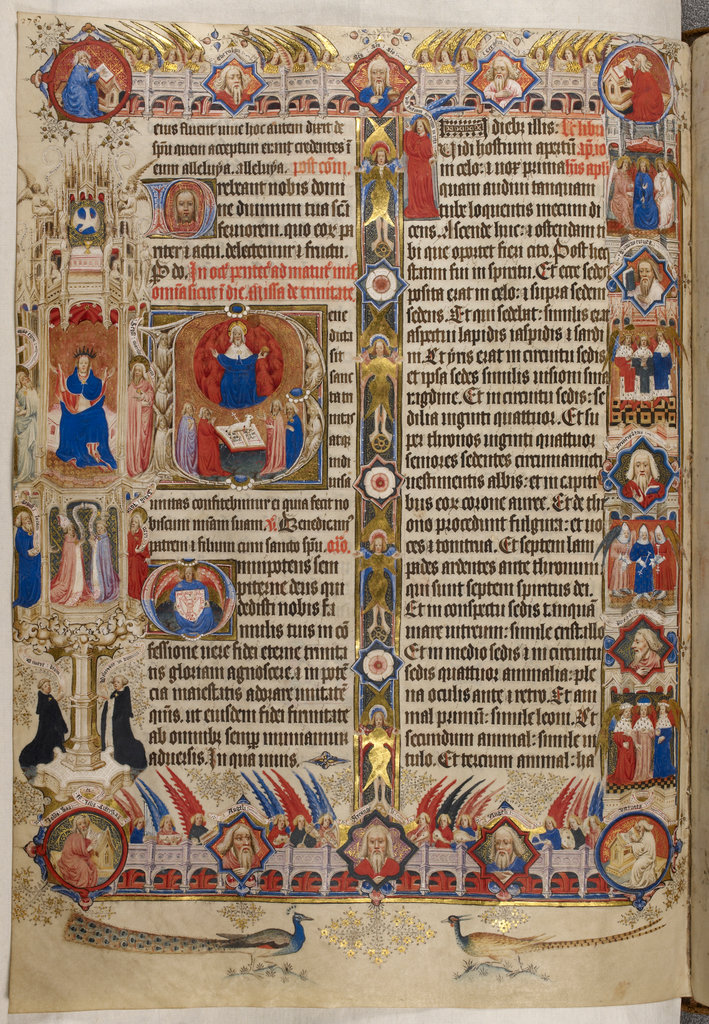 276
eius fluent uiue hoc autem dixit de
spu quem accepturi erant credentes i
eum alleluya. alleluya. post com.
Repleant nobis domi
ne dominum tua sca
riter et actu. delectemur et fructu.
P do. In oct pentec ad matut mis
omnia sicut i die. Missa de trinitate
Bene
dicta
sit
sanc
ta tri
nitas
atqz
indi
uisa
unitas confitebimur ei quia fecit no
biscum miam suam. v. Benedicamus
patrem et filium cum sancto spu. oro.
Omnipotens sem
piterne deus qui
dedisti nobis fa
mulis tuis in co
fessione uere fidei eterne trinita
tis gloriam agnoscere. et in poten
cia maiestatis adorare unitatem
qms. ut eiusdem fidei firmitate
ab omnibz semp muniamur
aduersis. In qua uiuis.
In diebz illis: Le libri
Uidi hostium apertum
in celo: et uox prima
quam audiui tanquam
tube loquentis mecum di
cens. Ascende huc: et ostendam ti
bi que oportet fieri cito. Post hec
statim fui in spiritu. Et ecce sedes
posita erat in celo: et supra sedem
sedens. Et qui sedebat: similis erat
aspectui lapidis iaspidis et sardi
ni. Et yris erat in circuitu sedis
et ipsa sedes similis uisioni sma
ragdine. Et in circuitu sedis: se
dilia uiginti quattuor. Et su
per thronos uiginti quattuor
seniores sedentes circumamicti
uestimentis albis: et in capiti
bus eor corone auree. Et de thr
ono procedunt fulgura: et uo
ces et tonitrua. Et septem lam
pades ardentes ante thronum:
qui sunt septem spiritus dei.
Et in conspectu sedis tanqua
mare uitreum: simile cristallo
Et in medio sedis et in circuitu
sedis quattuor animalia: ple
na oculis ante et retro. Et ani
mal primum: simile leoni. Et
secundum animal: simile ui
tulo. Et tercium animal: ha